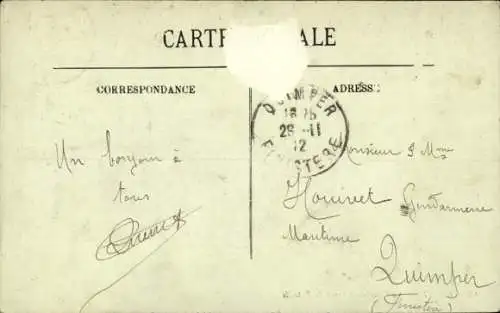 CARTE POSTALE
CORRESPONDANCE
ADRESSE
QUIMPER
29 - 11
12
FINISTERE
Un bonjour à
tous
Monsieur & Mme
Gendarmerie
Maritime
Quimper
(Finistère)